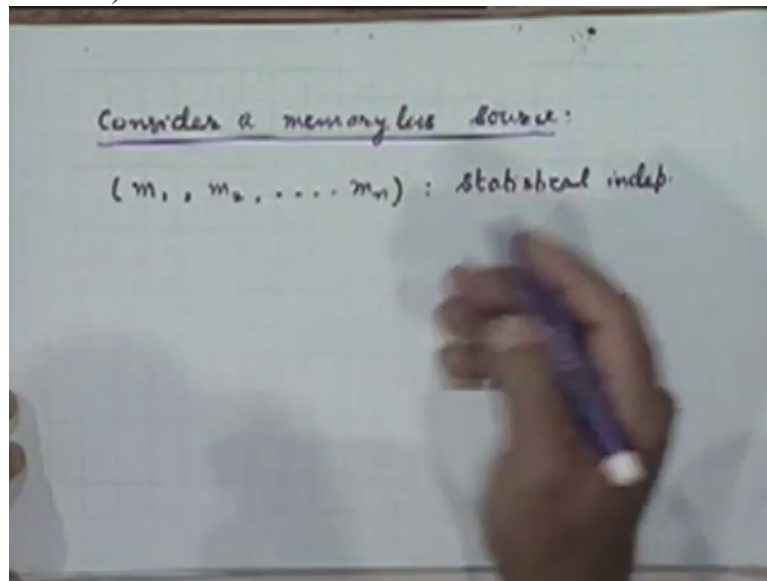 Consider a memoryless source:
(m₁, m₂, .... mₙ) : statistical indep.